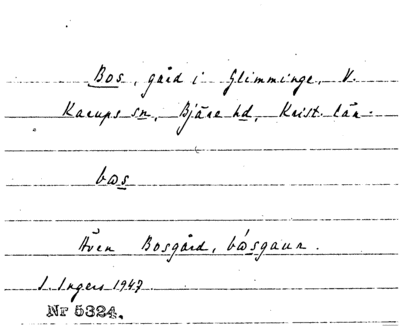 Bos, gård i Glimminge, V.
Karups sn, Bjäre hd, Krist. län.
bɷs
Även Bosgård, bɷ́sgaun.
I. Ingers 1947
Nr 5324.